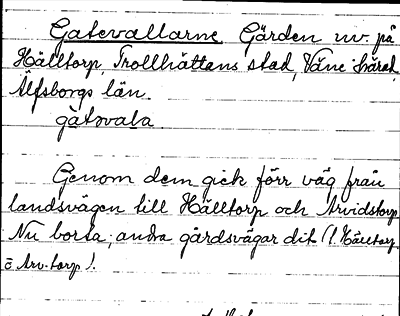 Gatevallarne Gärden nv. på
Hälltorp, Trollhättans stad, Väne härad,
Älfsborgs län.
gàtəvala
Genom dem gick förr väg från
landsvägen till Hälltorp och Arvidstorp
Nu borta; andra gårdsvägar dit (t. Hälltorp
o. Arv.torp).